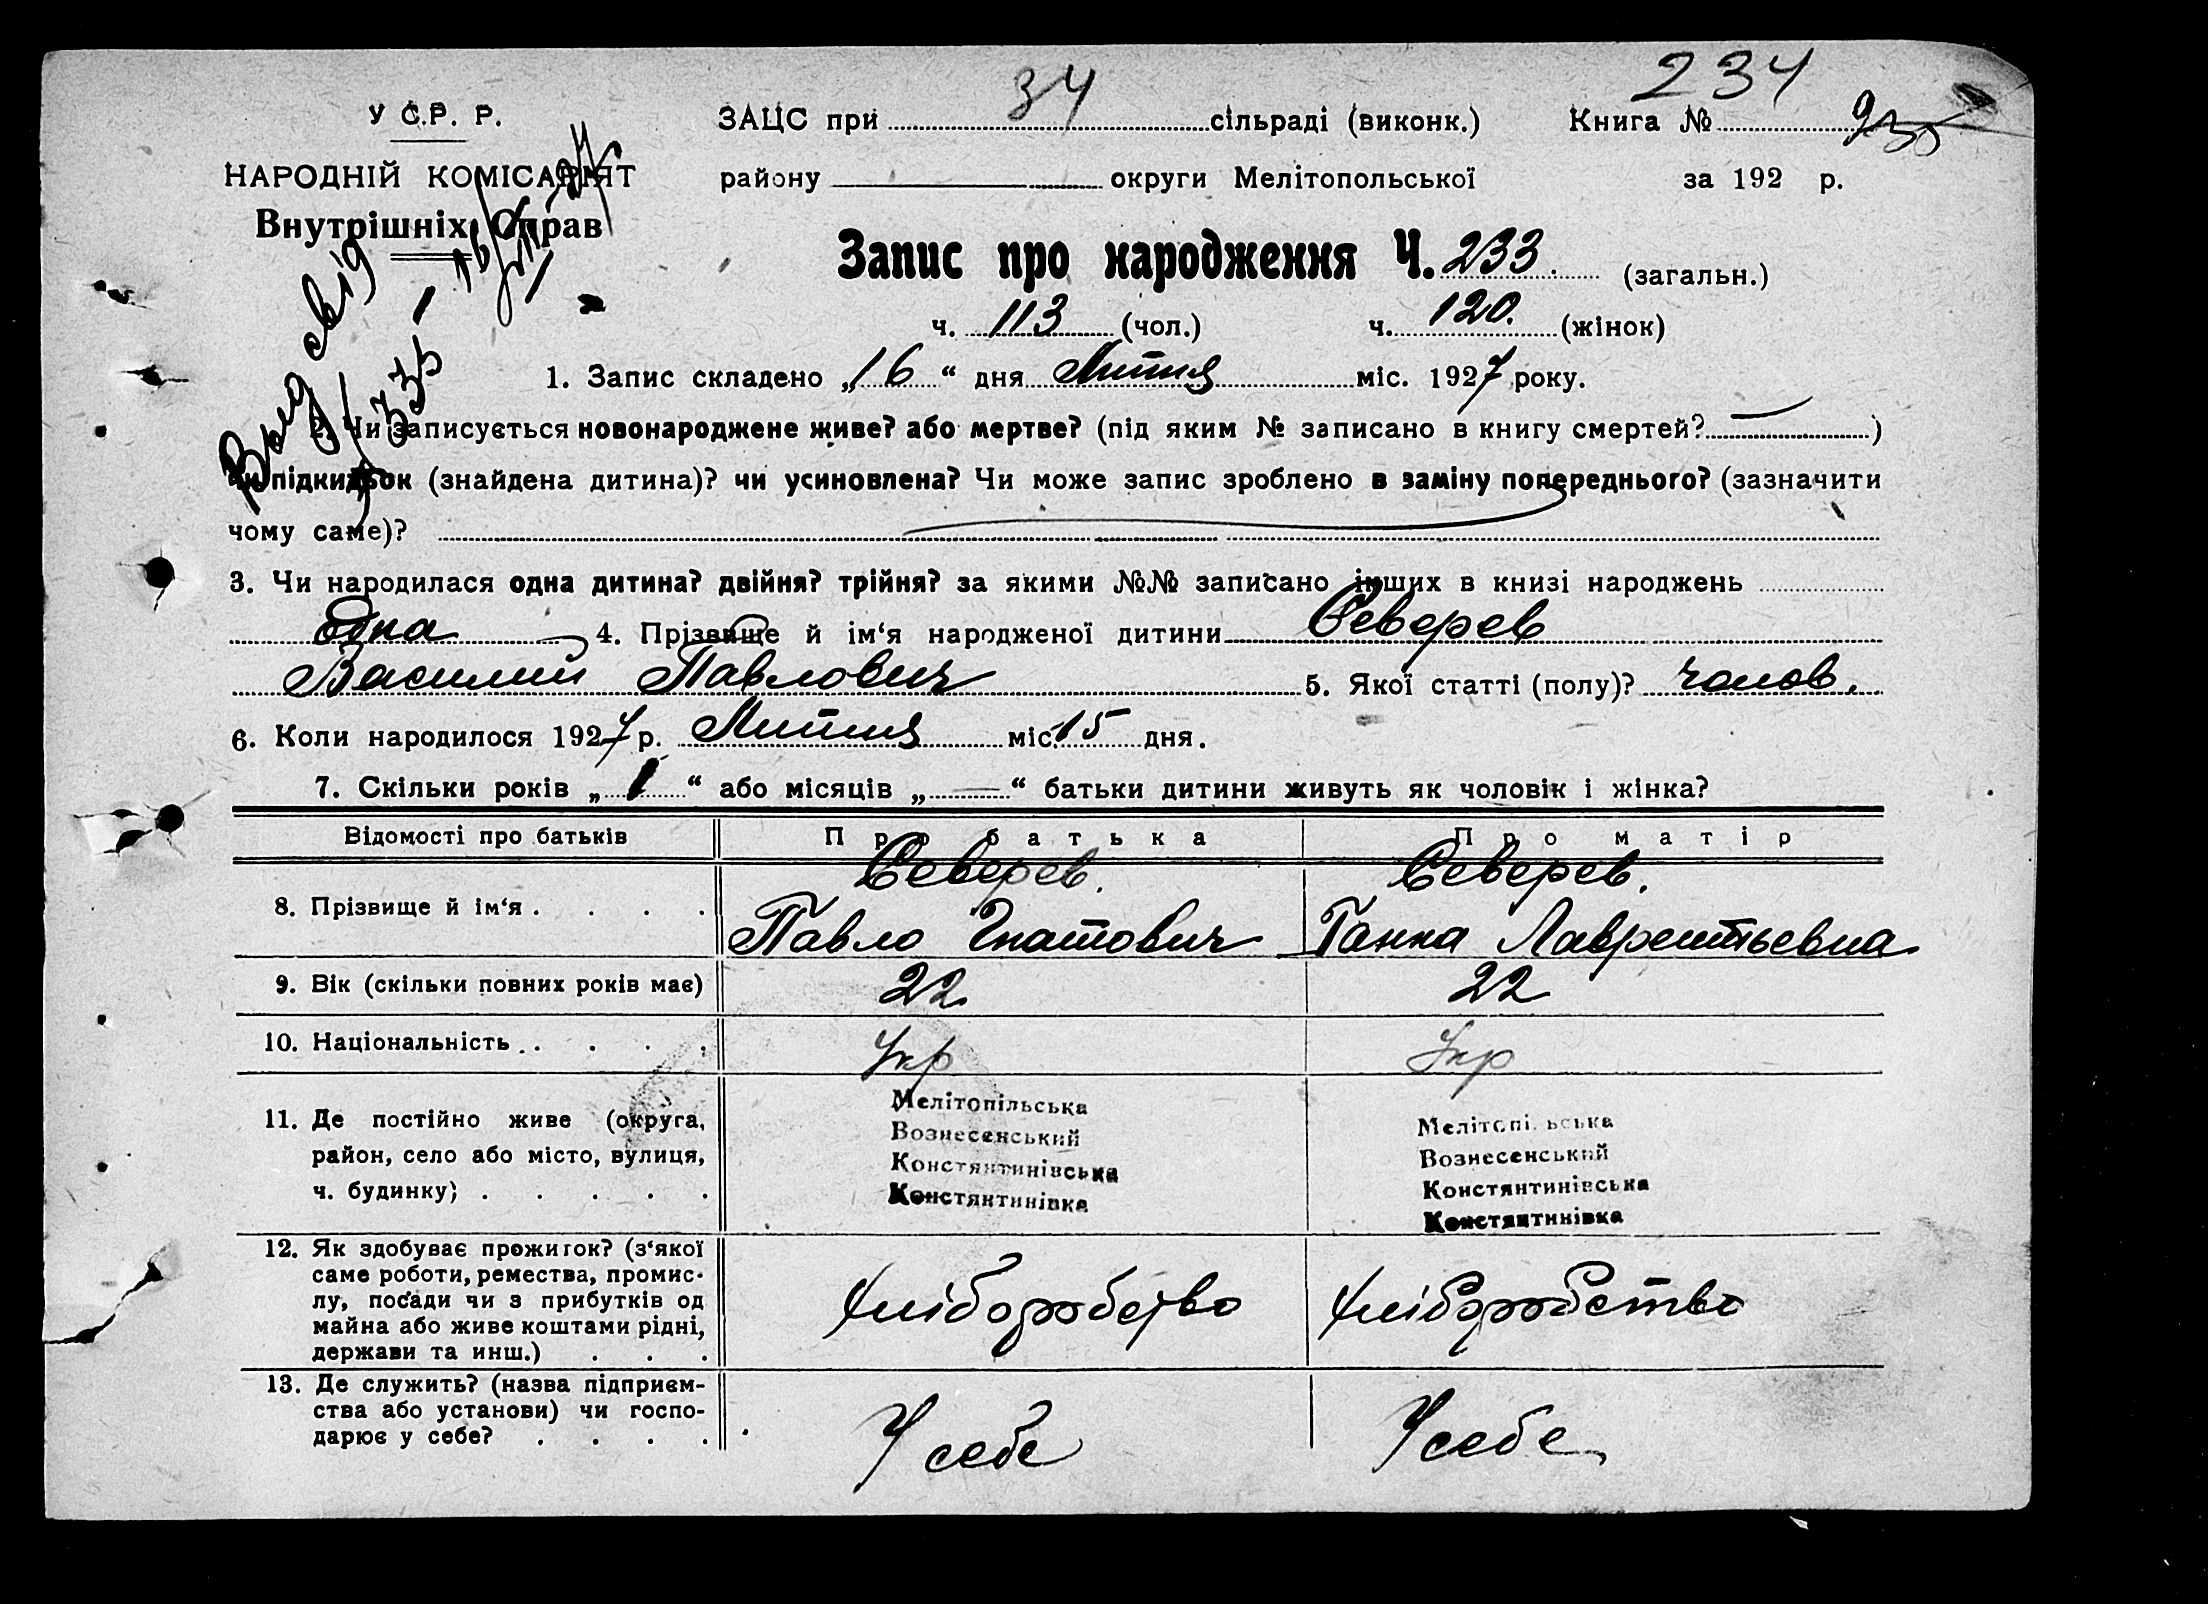 234
34
У С.Р. Р.
ЗАЦС при сільраді (виконк.) Книга № 935
НАРОДНІЙ КОМІСАРІЯТ
району округи Мелітопольської за 192 р.
Внутрішніх Справ
Запис про народження Ч. 233. (загальн.)
ч. 113 (чол.) ч. 120. (жінок)
1. Запис складено „16“ дня Липня міс. 1927 року.
2. Чи записується новонароджене живе? або мертве? (під яким № записано в книгу смертей? — )
чи підкидьок (знайдена дитина)? чи усиновлена? Чи може запис зроблено в заміну попереднього? (зазначити
чому саме)?
3. Чи народилася одна дитина? двійня? трійня? за якими №№ записано інших в книзі народжень
одна 4. Прізвище й ім‘я народженої дитини Северев
Василий Павлович 5. Якої статті (полу)? чолов.
6. Коли народилося 1927 р. Липня міс. 15 дня.
7. Скільки років „1“ або місяців „—“ батьки дитини живуть як чоловік і жінка?
Відомості про батьків Про батька Про матір
Северев. Северев.
8. Прізвище й ім‘я . . . . Павло Гнатович Ганна Лаврентьевна
9. Вік (скільки повних років має) 22 22
10. Національність . . . . Укр Укр
11. Де постійно живе (округа, район, село або місто, вулиця, ч. будинку) . . . . .
Мелітопільська
Вознесенський
Констянтинівська
Констянтинівка
Мелітопі ьська
Вознесенський
Констянтинівська
Констянтинівка
12. Як здобуває прожиток? (з‘якої
саме роботи, ремества, промис-
лу, посади чи з прибутків од
майна або живе коштами рідні,
держави та инш.) . . .
хліборобство хліборобство
13. Де служить? (назва підприєм-
ства або установи) чи госпо-
дарює у себе? . . . .
У себе У себе